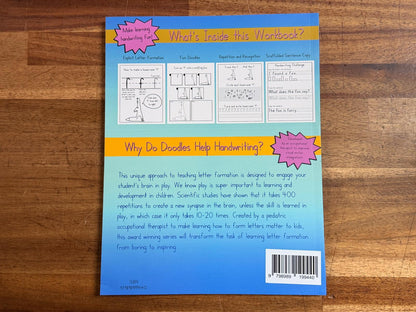 Make learning
handwriting Fun!
What's Inside this Workbook?
Explicit Letter Formation
Fun Doodles
Repetition and Recognition
Scaffolded Sentence Copy
Handwriting Challenge
I found a fox.
What does the fox say?
The fox is furry.
Why Do Doodles Help Handwriting?
This unique approach to teaching letter formation is designed to engage your
student's brain in play. We know play is super important to learning and
development in children. Scientific studies have shown that it takes 400
repetitions to create a new synapse in the brain, unless the skill is learned in
play, in which case it only takes 10-20 times. Created by a pediatric
occupational therapist to make learning how to form letters matter to kids,
this award winning series will transform the task of learning letter formation
from boring to inspiring.
ISBN
9 798989 199440